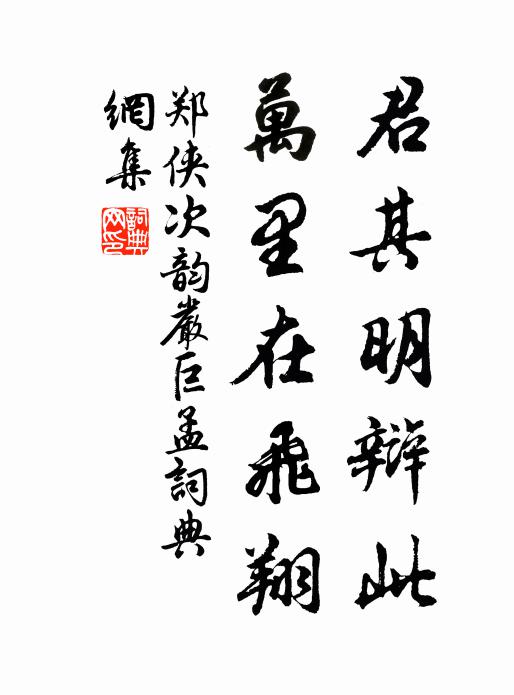 君其明辯此
萬里在飛翔
郑侠次韵嚴巨孟詞典
網集
詞典網印